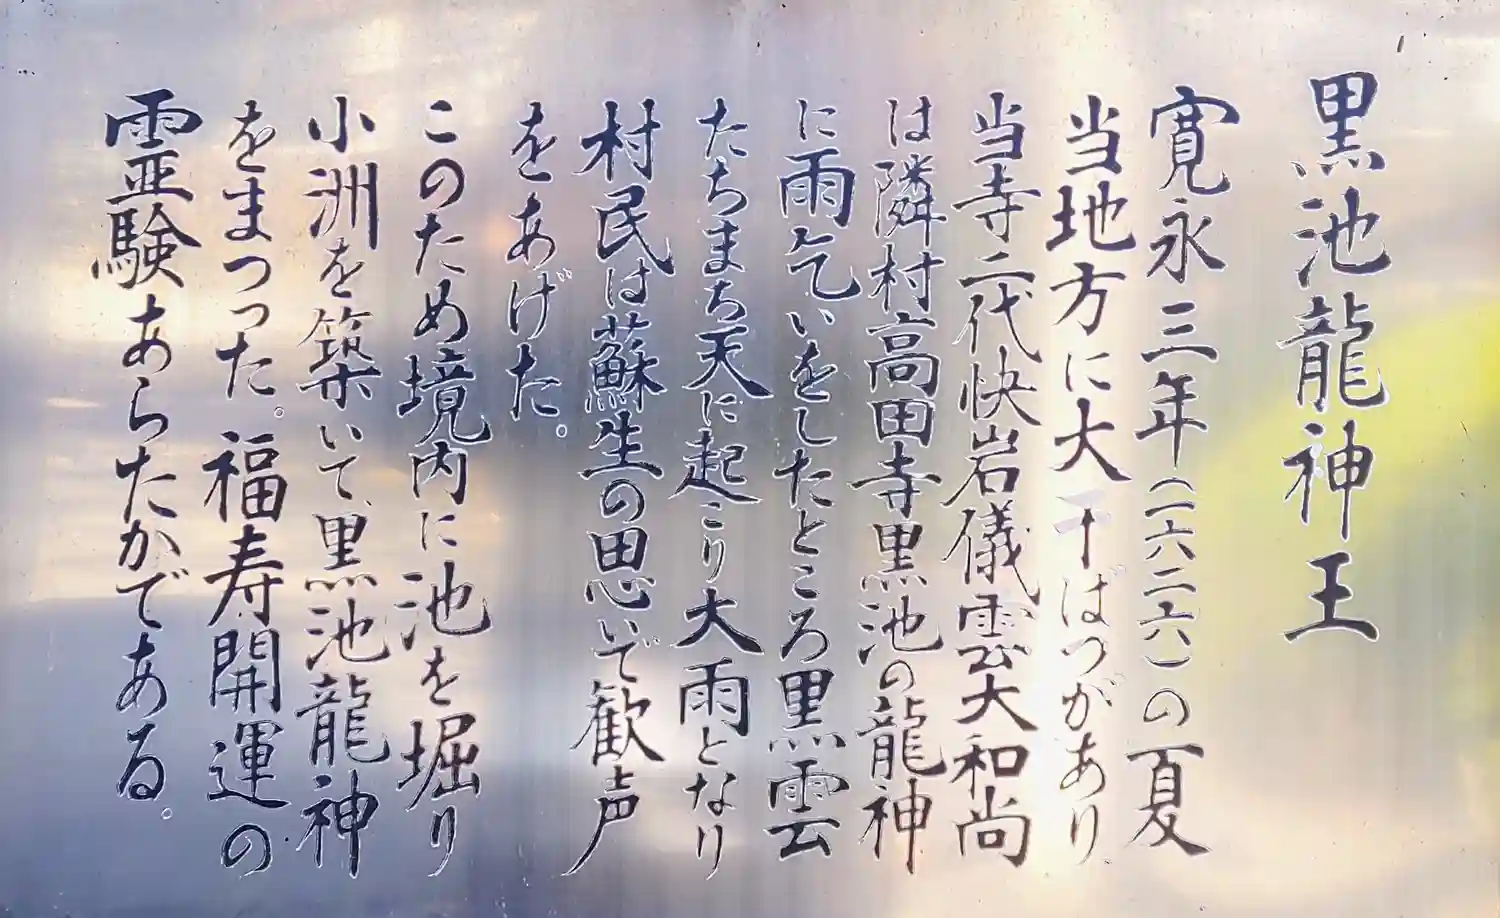 黒池龍神王
寛永三年(一六二六)の夏
当地方に大干ばつがあり
当寺二代快岩儀雲大和尚
は隣村高田寺黒池の龍神
に雨乞いをしたところ黒雲
たちまち天に起こり大雨となり
村民は蘇生の思いで歓声
をあげた。
このため境内に池を堀り
小洲を築いて黒池龍神
をまつった。福寿開運の
霊験あらたかである。